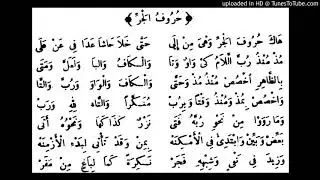 uploaded in HD @ TunesToTube.com
حُرُوفُ الْجَرِّ
هَاكَ حُرُوفَ الْجَرِّ وَهْيَ مِنْ إِلَى حَتَّى خَلَا حَاشَا عَدَا فِي عَنْ عَلَى
مُذْ مُنْذُ رُبَّ اللَّامُ كَيْ وَاوٌ وَتَا وَالْكَافُ وَالْبَا وَلَعَلَّ وَمَتَى
بِالظَّاهِرِ اخْصُصْ مُنْذُ مُذْ وَحَتَّى وَالْكَافَ وَالْوَاوَ وَرُبَّ وَالتَّا
وَاخْصُصْ بِمُذْ وَمُنْذُ وَقْتًا وَبِرُبْ مُنَكَّرًا وَالتَّاءُ لِلّٰهِ وَرَبْ
وَمَا رَوَوْا مِنْ نَحْوِ رُبَّهُ فَتَى نَزْرٌ كَذَا كَهَا وَنَحْوُهُ أَتَى
بَعِّضْ وَبَيِّنْ وَابْتَدِئْ فِي الْأَمْكِنَهْ بِمِنْ وَقَدْ تَأْتِي لِبَدْءِ الْأَزْمِنَهْ
وَزِيدَ فِي نَفْيٍ وَشِبْهِهِ فَجَرْ نَكِرَةً كَمَا لِبَاغٍ مِنْ مَفَرْ